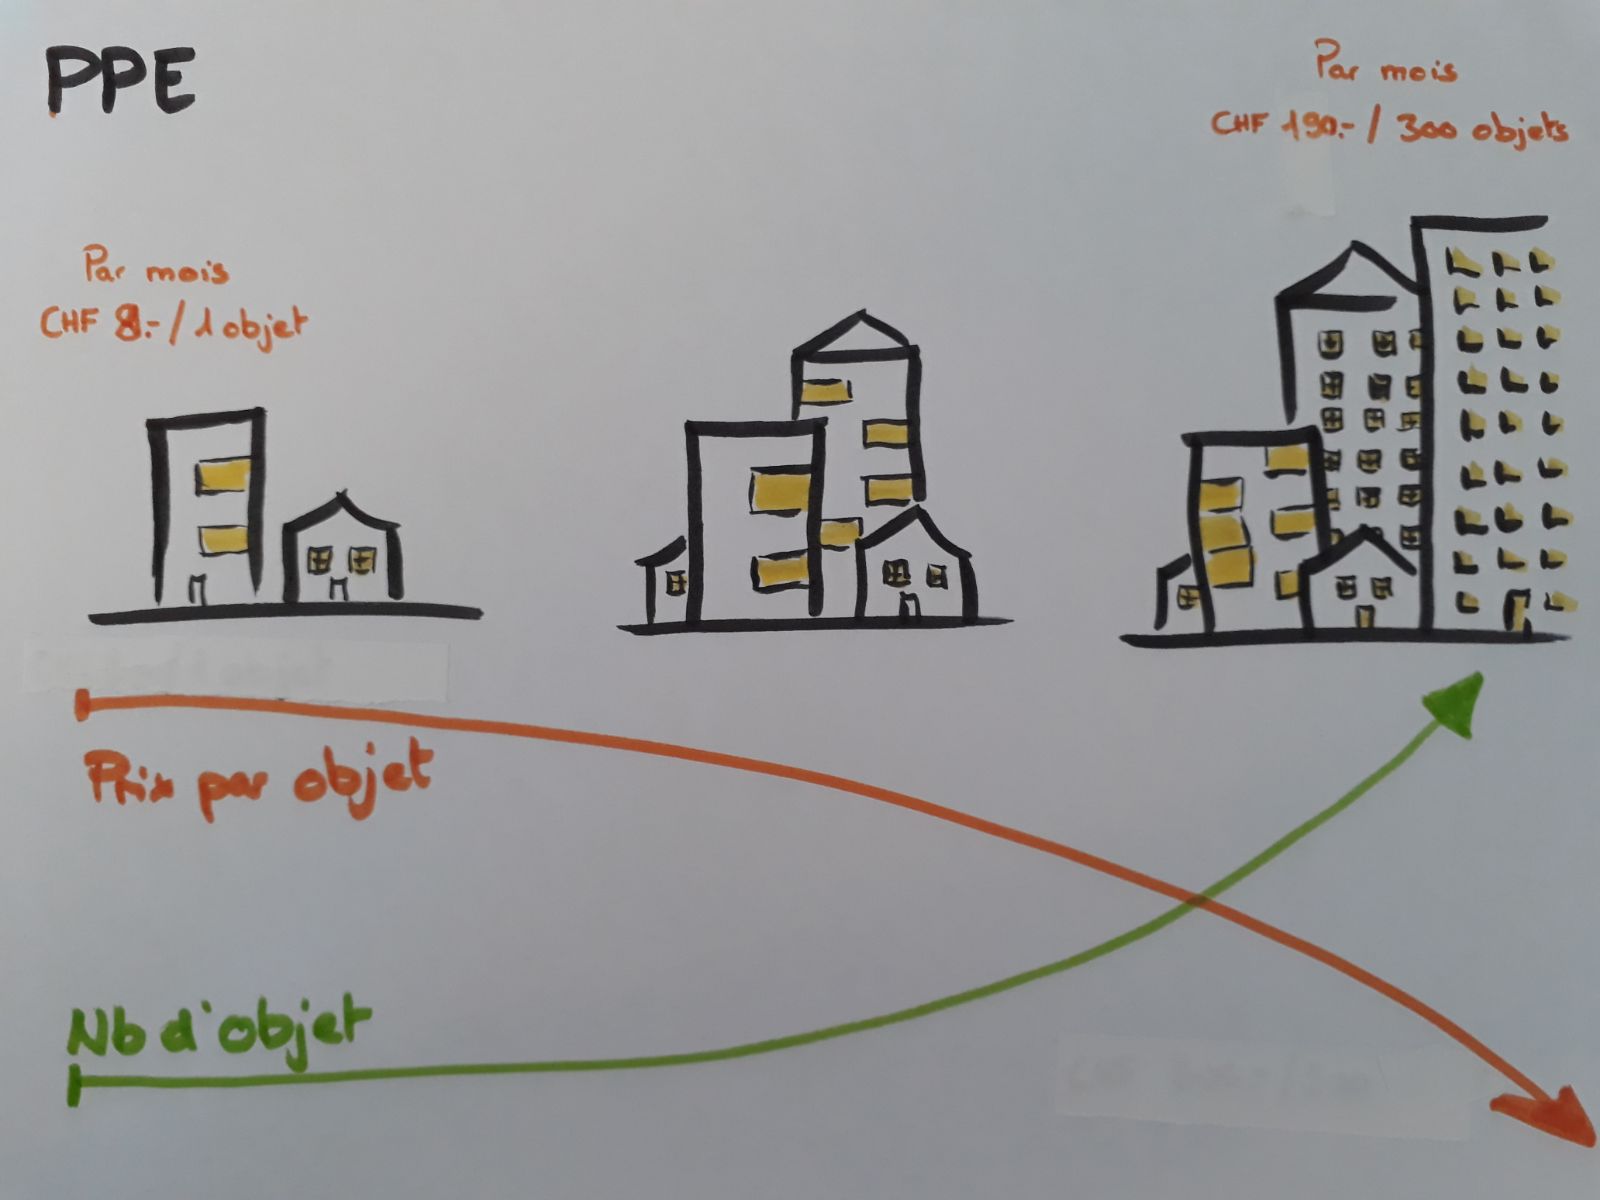 PPE
Par mois
CHF 190.- / 300 objets
Par mois
CHF 8.- / 1 objet
Prix par objet
Nb d'objet